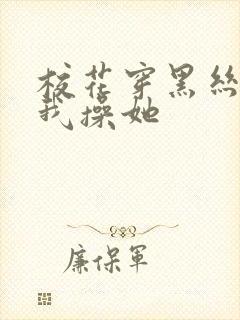 校花穿黑丝
我操她
廉保軍